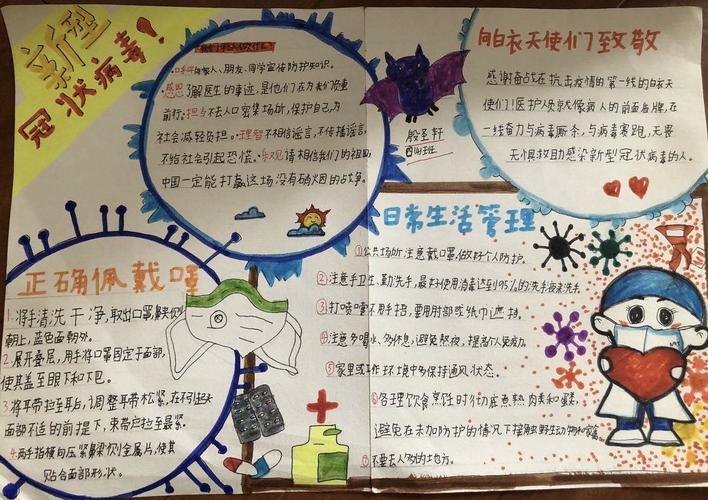 新型
冠状病毒!
·口手叫每家人、朋友、同学宣传防护知识。
·感恩了解医生的事迹，是他们在为我们负重
前行。担当不去人口密集场所，保护自己，为
社会减轻负担。·理智不相信谣言，不传播谣言，
不给社会引起恐慌。·乐观请相信我们的祖国
中国一定能打赢这场没有硝烟的战争。
殷圣轩
向白衣天使们致敬
感谢奋战在抗击疫情的第一线的白衣天
使们!医护人员就像病人的前面盾牌，在
一线奋力与病毒厮杀，与病毒赛跑，无畏
无惧救助感染新型冠状病毒的人。
正确佩戴口罩
1. 将手清洗干净，取出口罩，
朝上，蓝色面朝外。
2. 展开叠层，用手将口罩固定于面部，
使其盖至眼下和下巴。
3. 将耳带拉至耳后，调整耳带松紧，在不引起
面部不适的前提下，耳带应拉至最紧。
4. 两手指横向压紧鼻梁金属片，使其
贴合面部形状。
日常生活管理
①公共场所注意戴口罩，做好个人防护。
②注意手卫生、勤洗手，最好使用消毒达到95%的洗手液来洗手。
③打喷嚏不用手捂，要用肘部或纸巾遮挡。
④注意多喝水、多休息，避免熬夜。提高个人免疫力。
⑤家里或工作环境中多保持通风状态。
⑥合理饮食烹饪时彻底煮熟肉类和蛋类，
避免在未加防护的情况下接触野生动物和家禽。
⑦不要去人多的地方。